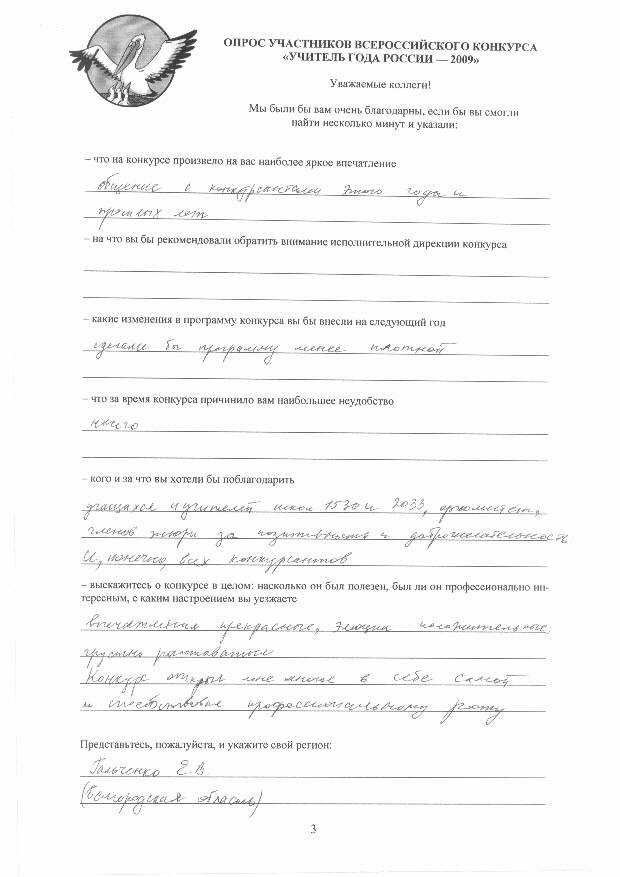 ОПРОС УЧАСТНИКОВ ВСЕРОССИЙСКОГО КОНКУРСА
«УЧИТЕЛЬ ГОДА РОССИИ — 2009»
Уважаемые коллеги!
Мы были бы вам очень благодарны, если бы вы смогли
найти несколько минут и указали:
– что на конкурсе произвело на вас наиболее яркое впечатление
общение с конкурсантами этого года и
прошлых лет
– на что вы бы рекомендовали обратить внимание исполнительной дирекции конкурса
– какие изменения в программу конкурса вы бы внесли на следующий год
сделала бы программу менее плотной
– что за время конкурса причинило вам наибольшее неудобство
– кого и за что вы хотели бы поблагодарить
учащихся и учителей школ 1530 и 2033, оргкомитет,
членов жюри за позитивность и доброжелательность
И, конечно, всех конкурсантов
– выскажитесь о конкурсе в целом: насколько он был полезен, был ли он профессионально ин-
тересным, с каким настроением вы уезжаете
впечатления прекрасные, эмоции положительные,
грустно расставаться
Конкурс открыл мне многое в себе самой
и способствовал профессиональному росту
Представьтесь, пожалуйста, и укажите свой регион:
Гальченко Е.В.
(Белгородская область)
3